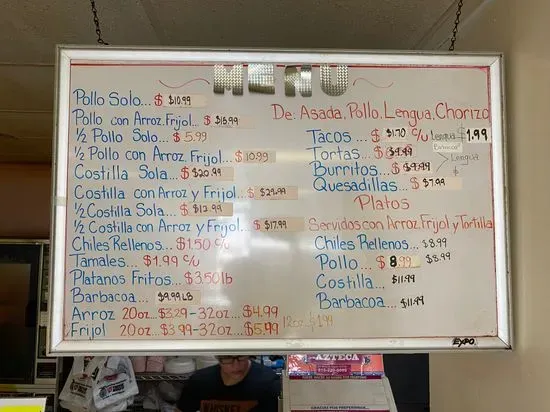 MENU
Pollo Solo... $ $10.99
Pollo con Arroz, Frijol... $ $16.99
½ Pollo Solo... $ 5.99
½ Pollo con Arroz, Frijol... $ 10.99
Costilla Sola... $20.99
Costilla con Arroz y Frijol... $29.99
½ Costilla Sola... $12.99
½ Costilla con Arroz y Frijol... $ $17.99
Chiles Rellenos... $1.50 c/u
Tamales... $1.99 c/u
Platanos Fritos... $3.50 lb
Barbacoa... $9.99 LB
Arroz 20oz... $3.29 - 32oz... $4.99
Frijol 20oz... $3.99 - 32oz... $5.99 12oz... $1.99
De: Asada, Pollo, Lengua, Chorizo
Tacos... $ $1.70 c/u Lengua $1.99
Tortas... $
Barbacoa
Burritos... $
Lengua
$
Quesadillas... $ $7.99
Platos
Servidos con Arroz, Frijol y Tortilla
Chiles Rellenos... $8.99
Pollo... $ 8.99 $8.99
Costilla... $11.99
Barbacoa... $11.99
EXPO
AZTECA